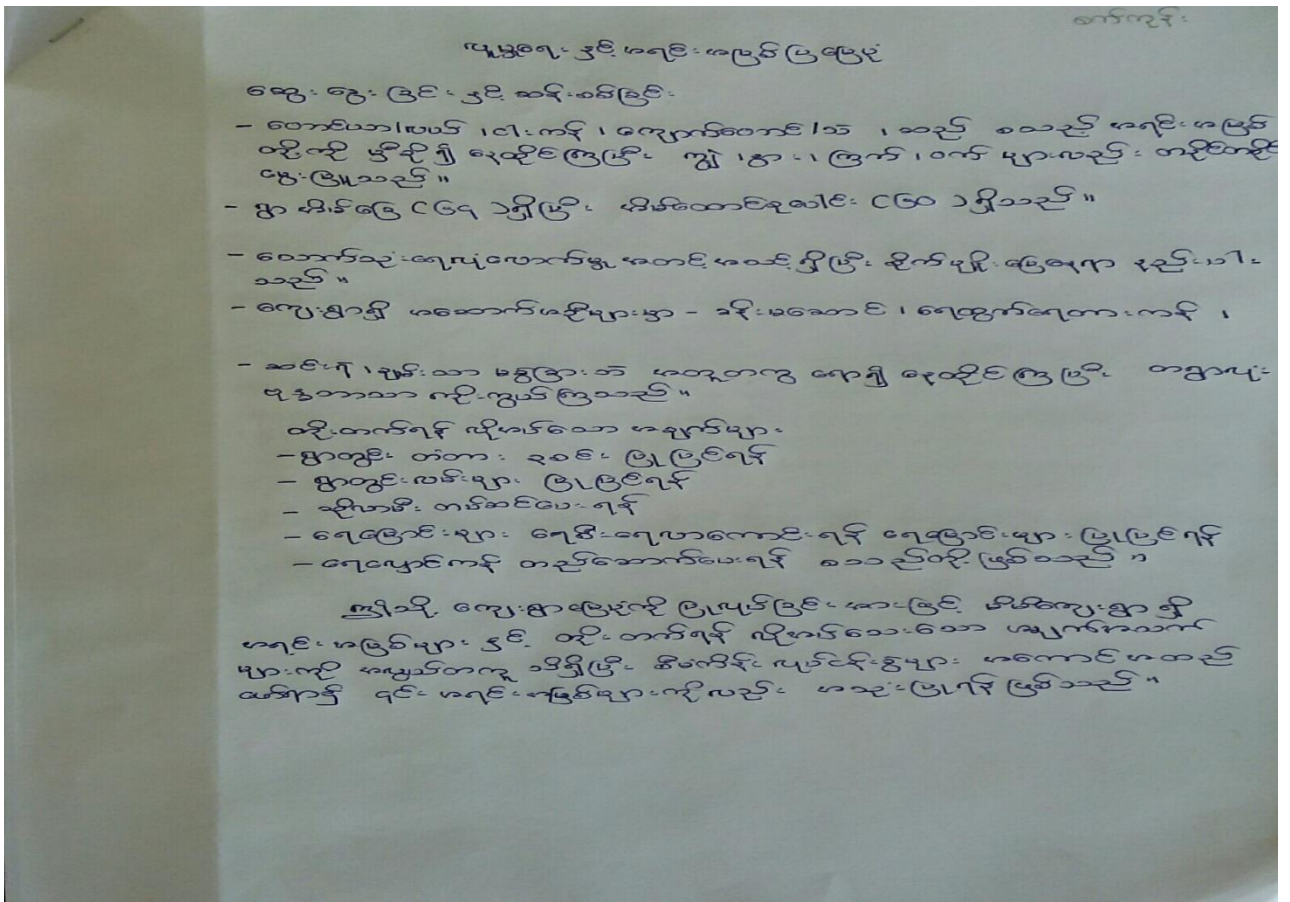 စက်ကုန်း
လူမှုရေး နှင့် အရင်းအမြစ်ပြမြေပုံ
ဆွေးနွေးခြင်း နှင့် ဆန်းစစ်ခြင်း
- တောင်ယာ၊လယ် ၊ငါးကန် ၊ကျောက်တောင်၊သဲ ၊ဆည် စသည့် အရင်းအမြစ်
တို့ကို မှီခို၍ နေထိုင်ကြပြီး ကျွဲ၊နွား၊ကြက်၊ဝက် များလည်း တနိုင်တပိုင်
မွေးမြူသည်။
- ရွာ အိမ်ခြေ (၆၄)ရှိပြီး အိမ်ထောင်စုပေါင်း (၆၀)ရှိသည်။
- သောက်သုံးရေလုံလောက်မှု အတင့်အသင့်ရှိပြီး စိုက်ပျိုးမြေနေရာ နည်းပါး
သည်။
- ကျေးရွာရှိ အဆောက်အဦများမှာ - ခန်းမဆောင်၊ ရေထွက်ရေတားကန် ၊
- ဆင်းရဲ ၊ချမ်းသာ မခွဲခြားဘဲ အတူတကွ ရော၍ နေထိုင်ကြပြီး တရွာလုံး
ဗုဒ္ဓဘာသာ ကိုးကွယ်ကြသည်။
တိုးတက်ရန် လိုအပ်သော အချက်များ
- ရွာတွင်း တံတား ၃စင်း ပြုပြင်ရန်
- ရွာတွင်းလမ်းများ ပြုပြင်ရန်
- ဆိုလာမီး တပ်ဆင်ပေးရန်
- ရေမြောင်းများ ရေစီးရေလာကောင်းရန် ရေမြောင်းများ ပြုပြင်ရန်
- ရေလှောင်ကန် တည်ဆောက်ပေးရန် စသည်တို့ဖြစ်သည်။
ဤသို့ ကျေးရွာမြေပုံကို ပြုလုပ်ခြင်းအားဖြင့် မိမိကျေးရွာရှိ
အရင်းအမြစ်များ နှင့် တိုးတက်ရန် လိုအပ်သေးသော အချက်အလက်
များကို အလွယ်တကူ သိရှိပြီး စီမံကိန်း လုပ်ငန်းစဉ်များ အကောင်အထည်
ဖော်ရာ၌ ၎င်း အရင်းအမြစ်များကိုလည်း အသုံးပြုရန် ဖြစ်သည်။